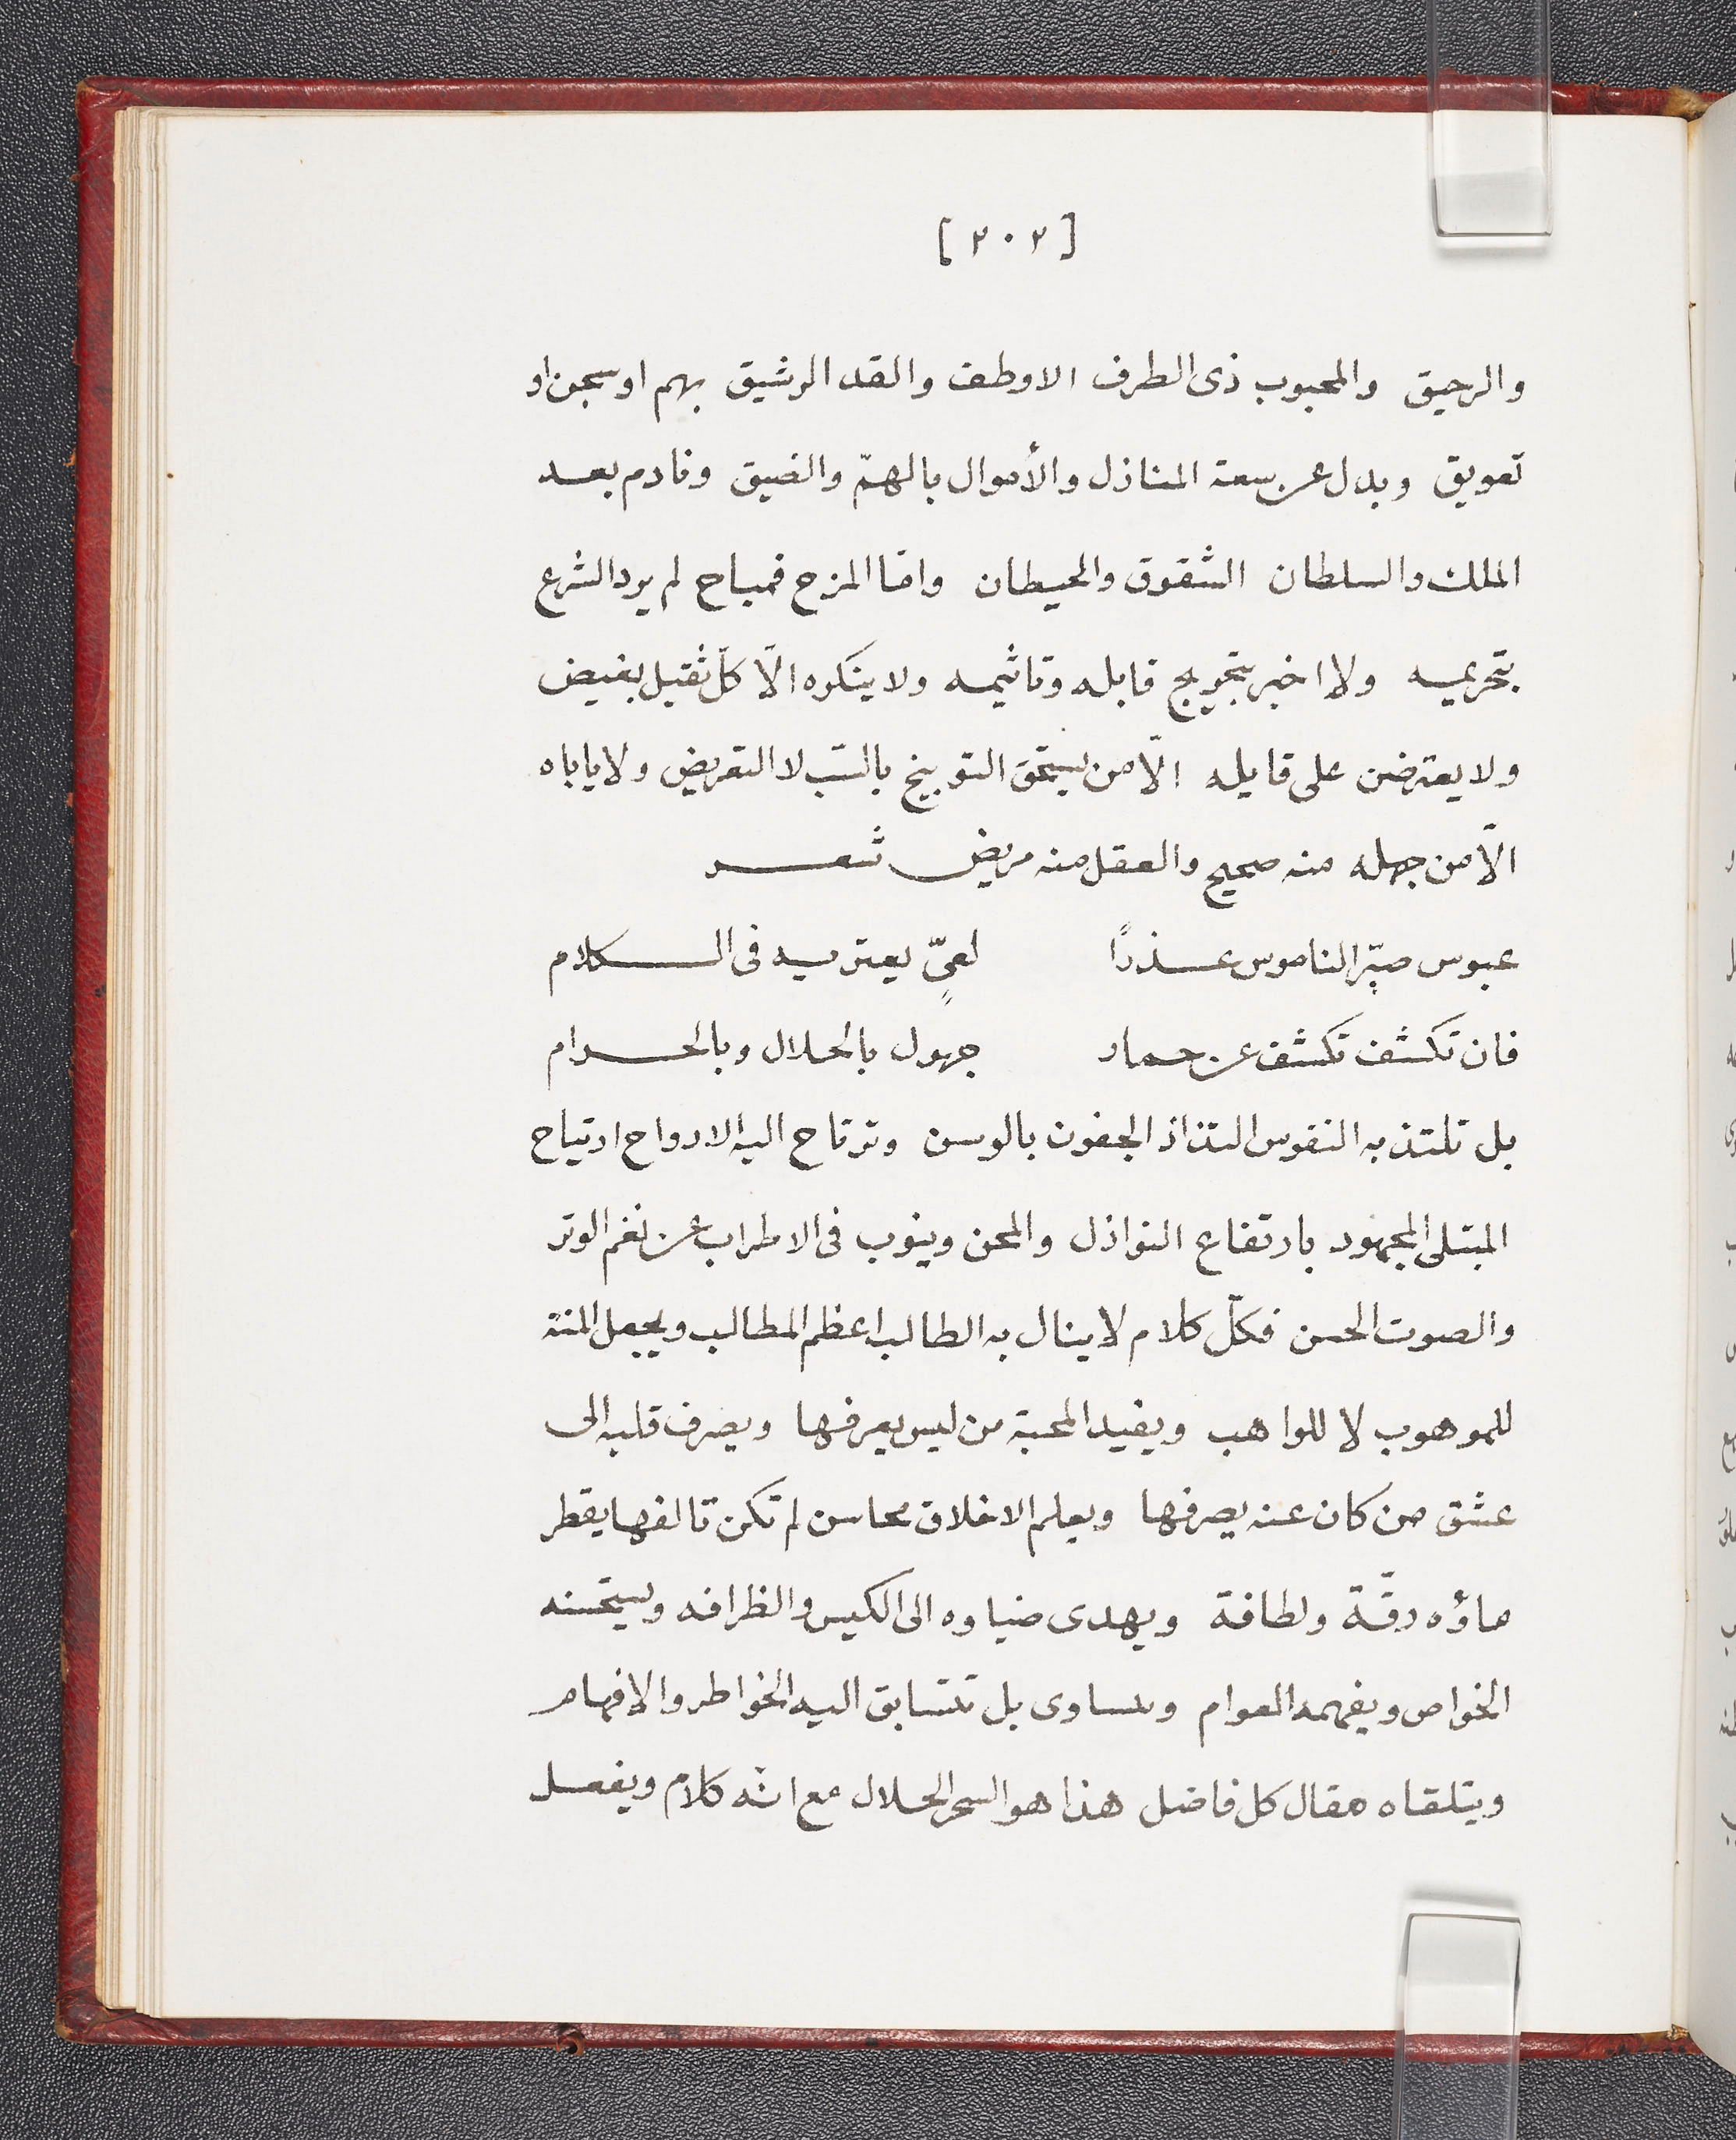 [٢٠٢]
والرحيق والمحبوب ذى الطرف الاوطف والقد الرشيق بهم او سجن او
تعويق وبدل عن سعة المنازل والأموال بالهمّ والضيق ونادم بعد
الملك والسلطان الشقوق والحيطان وامّا المزح فمباح لم يرد الشرع
بتحريمه ولا اخبر بتجويج قابله وتاثيمه ولا ينكره الّا كلّ ثقيل بغيض
ولا يعترض على قايله الّا من يستحق التوبيخ بالسّب لا التعريض ولا ياباه
الّا من جهله منه صحيح والعقل منه مريض شعر
عبوس صيّر الناموس عذرًا لعىٍّ يعتريه فى الكلام
فان تكشف تكشف عن حمار جهول بالحلال وبالحرام
بل تلتذ به النفوس التذاذ الجفون بالوسن وترتاح اليه الارواح ارتياح
المبتلى المجهود بارتفاع النوازل والمحن وينوب فى الاطراب عن نغم الوتر
والصوت الحسن فكلّ كلام لا ينال به الطالب اعظم المطالب ويجعل المنة
للموهوب لا للواهب ويفيد المحبة من ليس يعرفها ويصرف قلبه الى
عشق من كان عنه يصرفها ويعلم الاخلاق محاسن لم تكن تالفها يقطر
ماؤه رقّة ولطافة ويهدى ضياوه الى الكيس والظرافه ويستحسنه
الخواص ويفهمه العوام وتتساوى بل تتسابق اليه الخواطر والافهام
ويتلقاه مقال كل فاضل هذا هو السحر الحلال مع انّه كلام ويفعل